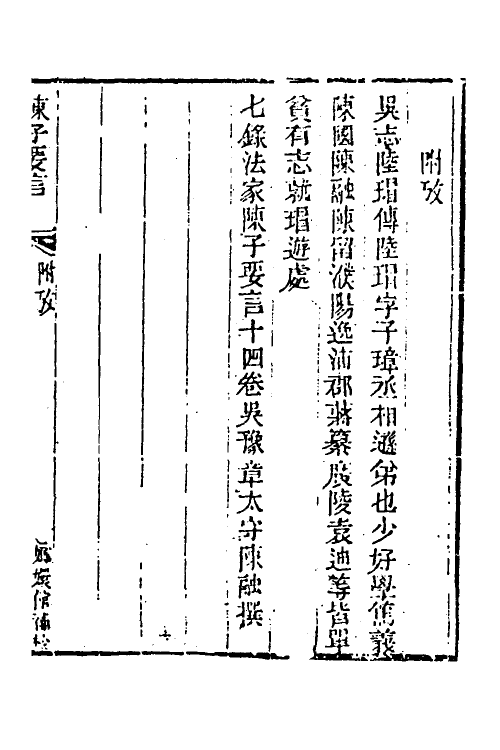 附攷
吳志陸瑁傳陸瑁字子璋丞相遜弟也少好學篤義
陳國陳融陳留濮陽逸沛郡蔣纂廣陵袁迪等皆單
貧有志就瑁遊處
七錄法家陳子要言十四卷吳豫章太守陳融撰
陳子要言
附攷
嫏嬛館補校